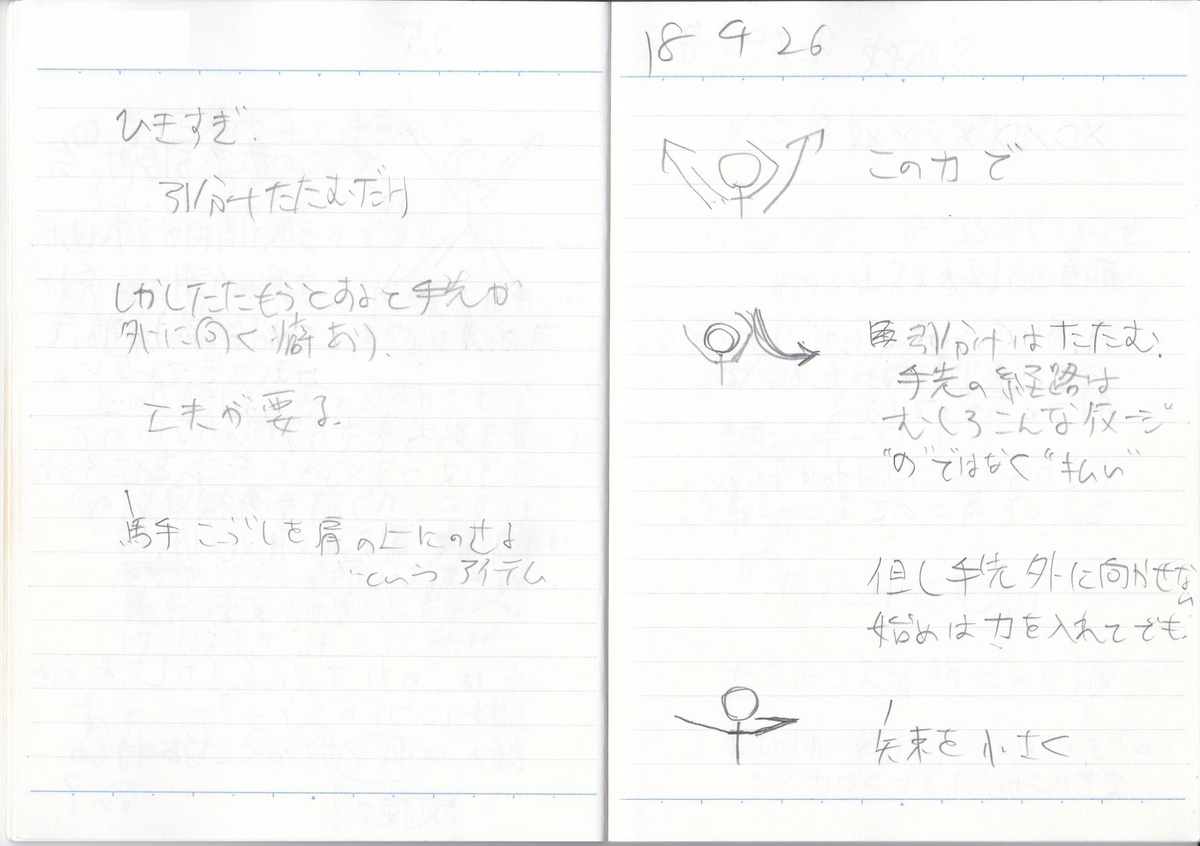 ひきすぎ.
引分けたたむだけ
しかしたたもうとすると手先が
外に向く癖あり.
工夫が要る.
馬手こぶしを肩の上にのせよ
…というアイテム
18 4 26
この力で
引分けはたたむ.
手先の経路は
むしろこんなイメージ
"の"ではなく"払い"
但し手先外に向かせない
始めは力を入れてでも.
矢束を小さく